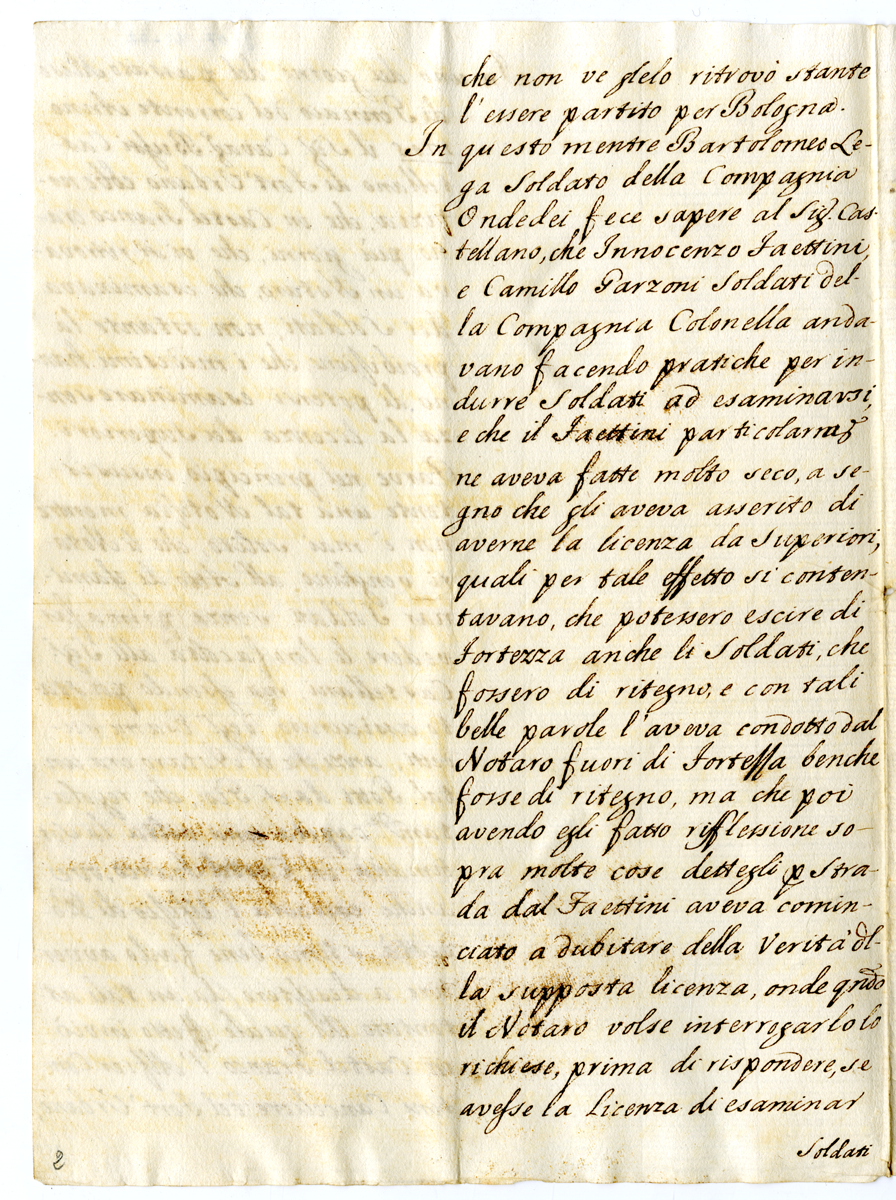 che non ve glelo ritrovò stante
l'essere partito per Bologna.
In questo mentre Bartolomeo Le-
ga Soldato della Compagnia
Ondedei fece sapere al Sig. Cas-
tellano, che Innocenzo Faettini,
e Camillo Garzoni Soldati del-
la Compagnia Colonella anda-
vano facendo pratiche per in-
durre Soldati ad esaminarsi,
e che il Faettini particolarm.
ne aveva fatte molto seco, a se-
gno che gli aveva asserito di
averne la licenza da Superiori,
quali per tale effetto si conten-
tavano, che potessero escire di
Fortezza anche li Soldati, che
fossero di ritegno, e con tali
belle parole l'aveva condotto dal
Notaro fuori di Fortessa benche
fosse di ritegno, ma che poi
avendo egli fatto riflessione so-
pra molte cose dettegli p Stra-
da dal Faettini aveva comin-
ciato a dubitare della Verità dl-
la supposta licenza, onde qndo
il Notaro volse interrogarlo lo
richiese, prima di rispondere, se
avesse la Licenza di esaminar
Soldati
2